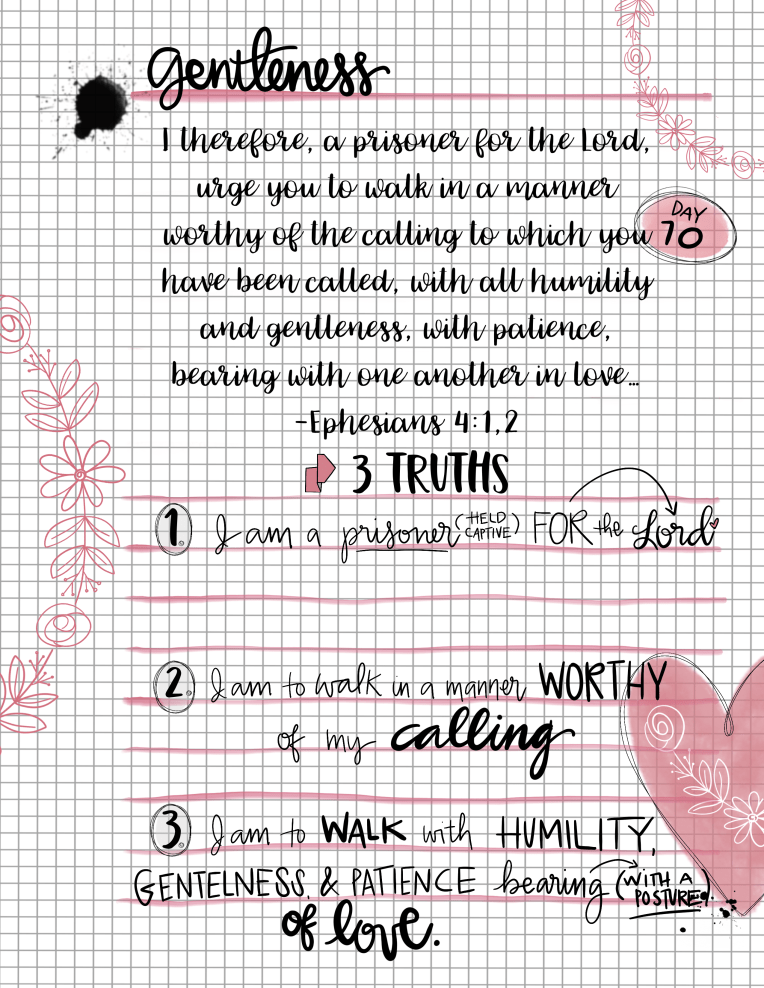 gentleness
I therefore, a prisoner for the Lord,
urge you to walk in a manner
worthy of the calling to which you
DAY
10
have been called, with all humility
and gentleness, with patience,
bearing with one another in love...
-Ephesians 4:1,2
3 TRUTHS
1. I am a prisoner (HELD CAPTIVE) FOR the Lord
2. I am to walk in a manner WORTHY
of my calling
3. I am to WALK with HUMILITY,
GENTELNESS, & PATIENCE bearing (WITH A POSTURE)
of love.